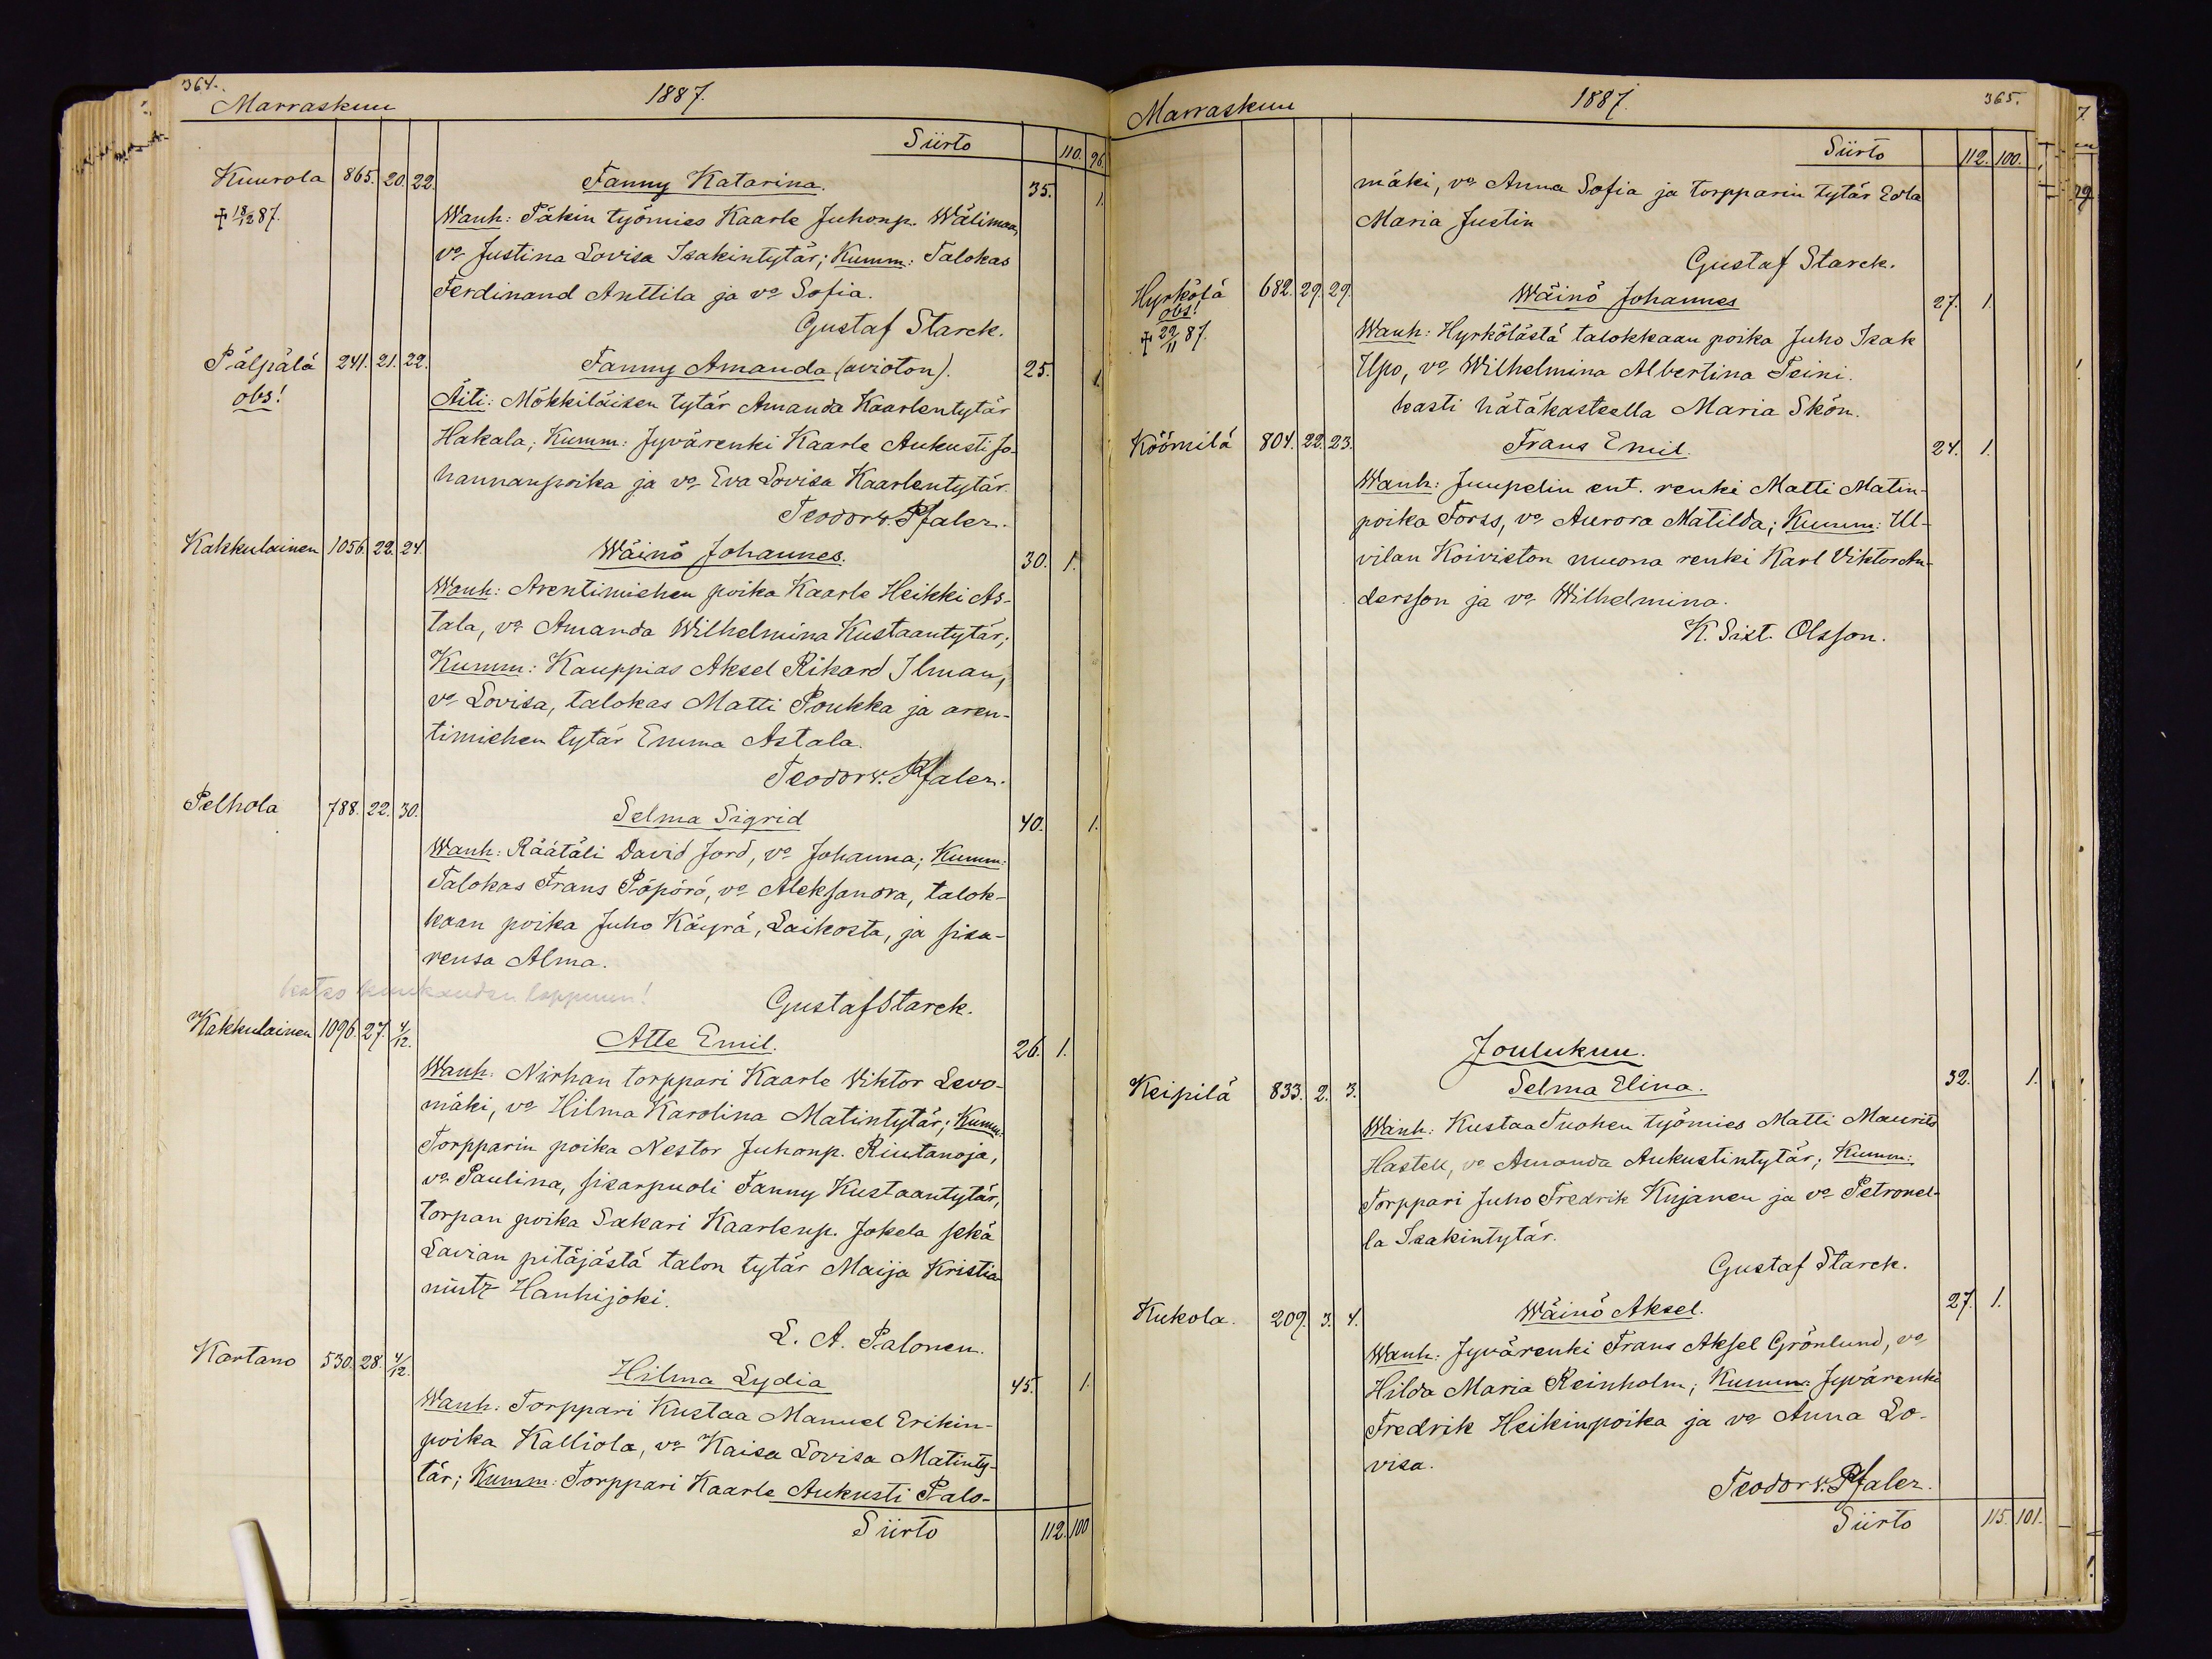 364.
Marraskuu 1887.
Siirto 110. 96.
Kuurola 865. 20. 22. Fanny Katarina. 35. 1.
† 18/12 87. Wanh: Päkin työmies Kaarle Juhonp. Wälimaa,
vo Justina Lovisa Isakintytär; Kumm: Talokas
Ferdinand Anttila ja vo Sofia.
Gustaf Starck.
Pälpälä 241. 21. 22. Fanny Amanda (avioton). 25. 1.
obs! Äiti: Mökkiläisen tytär Amanda Kaarlentytär
Hakala; Kumm: Jyvärenki Kaarle Aukusti Jo-
hannanpoika ja vo Eva Lovisa Kaarlentytär.
Teodor v. Pfaler.
Kakkulainen 1056. 22. 24. Wäinö Johannes. 30. 1.
Wanh: Arentimiehen poika Kaarle Heikki As-
tala, vo Amanda Wilhelmina Kustaantytär;
Kumm: Kauppias Aksel Rikard Ilman,
vo Lovisa, talokas Matti Poukka ja aren-
timiehen tytär Emma Astala.
Teodor v. Pfaler.
Pelhola 788. 22. 30. Selma Sigrid 40. 1.
Wanh: Räätäli David Jord, vo Johanna; Kumm:
Talokas Frans Päpörö, vo Aleksandra, talok-
kaan poika Juho Käyrä, Laikosta, ja sisa-
rensa Alma.
katso kuukauden loppuun!
Gustaf Starck.
Kakkulainen 1096. 27. 4/12. Atte Emil. 26. 1.
Wanh: Nirhan torppari Kaarle Viktor Levo-
mäki, vo Hilma Karolina Matintytär; Kumm:
Torpparin poika Nestor Juhonp. Riutanoja,
vo Paulina, sisarpuoli Fanny Kustaantytär,
torpan poika Sakari Kaarlenp. Jokela sekä
Lavian pitäjästä talon tytär Maija Kristia-
nintr Hanhijoki.
L. A. Palonen.
Kartano 530. 28. 4/12. Hilma Lydia 45. 1.
Wanh: Torppari Kustaa Manuel Erikin-
poika Kalliola, vo Kaisa Lovisa Matinty-
tär; Kumm: Torppari Kaarle Aukusti Palo-
Siirto 112. 100
Marraskuu 1887. 365.
Siirto 112. 100.
mäki, vo Anna Sofia ja torpparin tytär Edla
Maria Justin
Gustaf Starck.
Hyrkölä 682. 29. 29. Wäinö Johannes 27. 1.
obs!
† 29/11 87. Wanh: Hyrkölästä talokkaan poika Juho Isak
Upo, vo Wilhelmina Albertina Teini.
kasti hätäkasteella Maria Skön.
Köömilä 804. 22. 23. Frans Emil. 24. 1.
Wanh: Juupelin ent. renki Matti Matin-
poika Forss, vo Aurora Matilda; Kumm: Ul-
vilan Koiviston muona renki Karl Viktor An-
dersson ja vo Wilhelmina.
K. Sixt. Olsson.
Joulukuu.
Keipilä 833. 2. 3. Selma Elina. 32. 1.
Wanh: Kustaa Tuohen työmies Matti Maurits
Hastell, vo Amanda Aukustintytär; Kumm:
Torppari Juho Fredrik Kujanen ja vo Petronel-
la Isakintytär.
Gustaf Starck.
Kukola. 209. 3. 4. Wäinö Aksel. 27. 1.
Wanh: Jyvärenki Frans Aksel Grönlund, vo
Hilda Maria Reinholm; Kumm: Jyvärenki
Fredrik Heikinpoika ja vo Anna Lo-
visa.
Teodor v. Pfaler.
Siirto 115. 101.